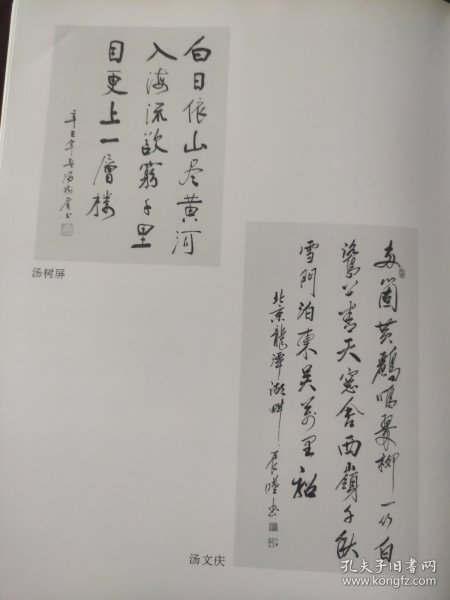 白日依山尽黄河
入海流欲窮千里
目更上一層楼
辛巳年
汤树屏
两箇黄鹂鳴翠柳一行白
鷺上青天窓含西嶺千秋
雪門泊東吴万里船
北京龍潭湖畔
汤文庆
孔夫子旧书网
www.kongfz.com